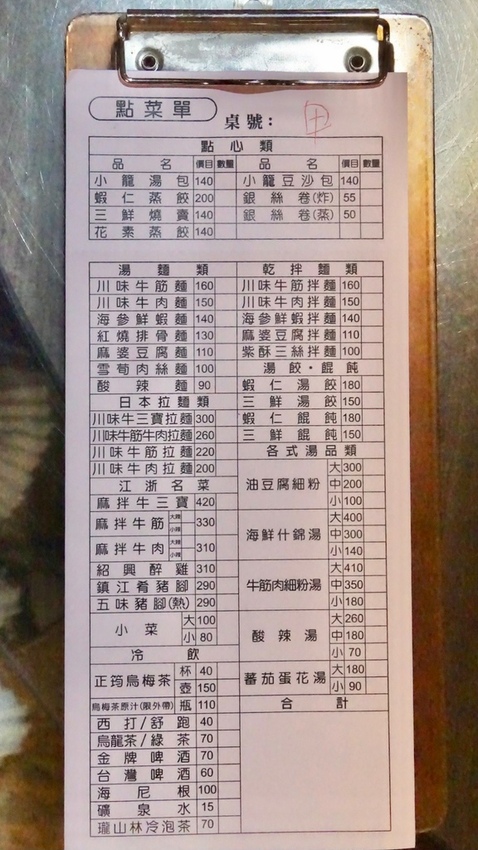 點菜單
桌號：
點心類
品名 價目 數量 品名 價目 數量
小籠湯包 140 小籠豆沙包 140
蝦仁蒸餃 200 銀絲卷(炸) 55
三鮮燒賣 140 銀絲卷(蒸) 50
花素蒸餃 140
湯麵類
川味牛筋麵 160
川味牛肉麵 150
海參鮮蝦麵 140
紅燒排骨麵 130
麻婆豆腐麵 110
雪荀肉絲麵 100
酸辣麵 90
日本拉麵類
川味牛三寶拉麵 300
川味牛筋牛肉拉麵 260
川味牛筋拉麵 220
川味牛肉拉麵 200
江浙名菜
麻拌牛三寶 420
麻拌牛筋 大辣 小辣 330
麻拌牛肉 大辣 小辣 310
紹興醉雞 310
鎮江肴豬腳 290
五味豬腳(熱) 290
小菜 大 100
小 80
冷飲
正筠烏梅茶 杯 40
壺 150
烏梅茶原汁(限外帶) 瓶 110
西打/舒跑 40
烏龍茶/綠茶 70
金牌啤酒 70
台灣啤酒 60
海尼根 100
礦泉水 15
瓏山林冷泡茶 70
乾拌麵類
川味牛筋拌麵 160
川味牛肉拌麵 150
海參鮮蝦拌麵 140
麻婆豆腐拌麵 110
紫酥三絲拌麵 100
湯餃・餛飩
蝦仁湯餃 180
三鮮湯餃 150
蝦仁餛飩 180
三鮮餛飩 150
各式湯品類
油豆腐細粉 大 300
中 200
小 100
海鮮什錦湯 大 400
中 300
小 140
牛筋肉細粉湯 大 410
中 350
小 180
酸辣湯 大 260
中 180
小 70
蕃茄蛋花湯 大 180
小 90
合計